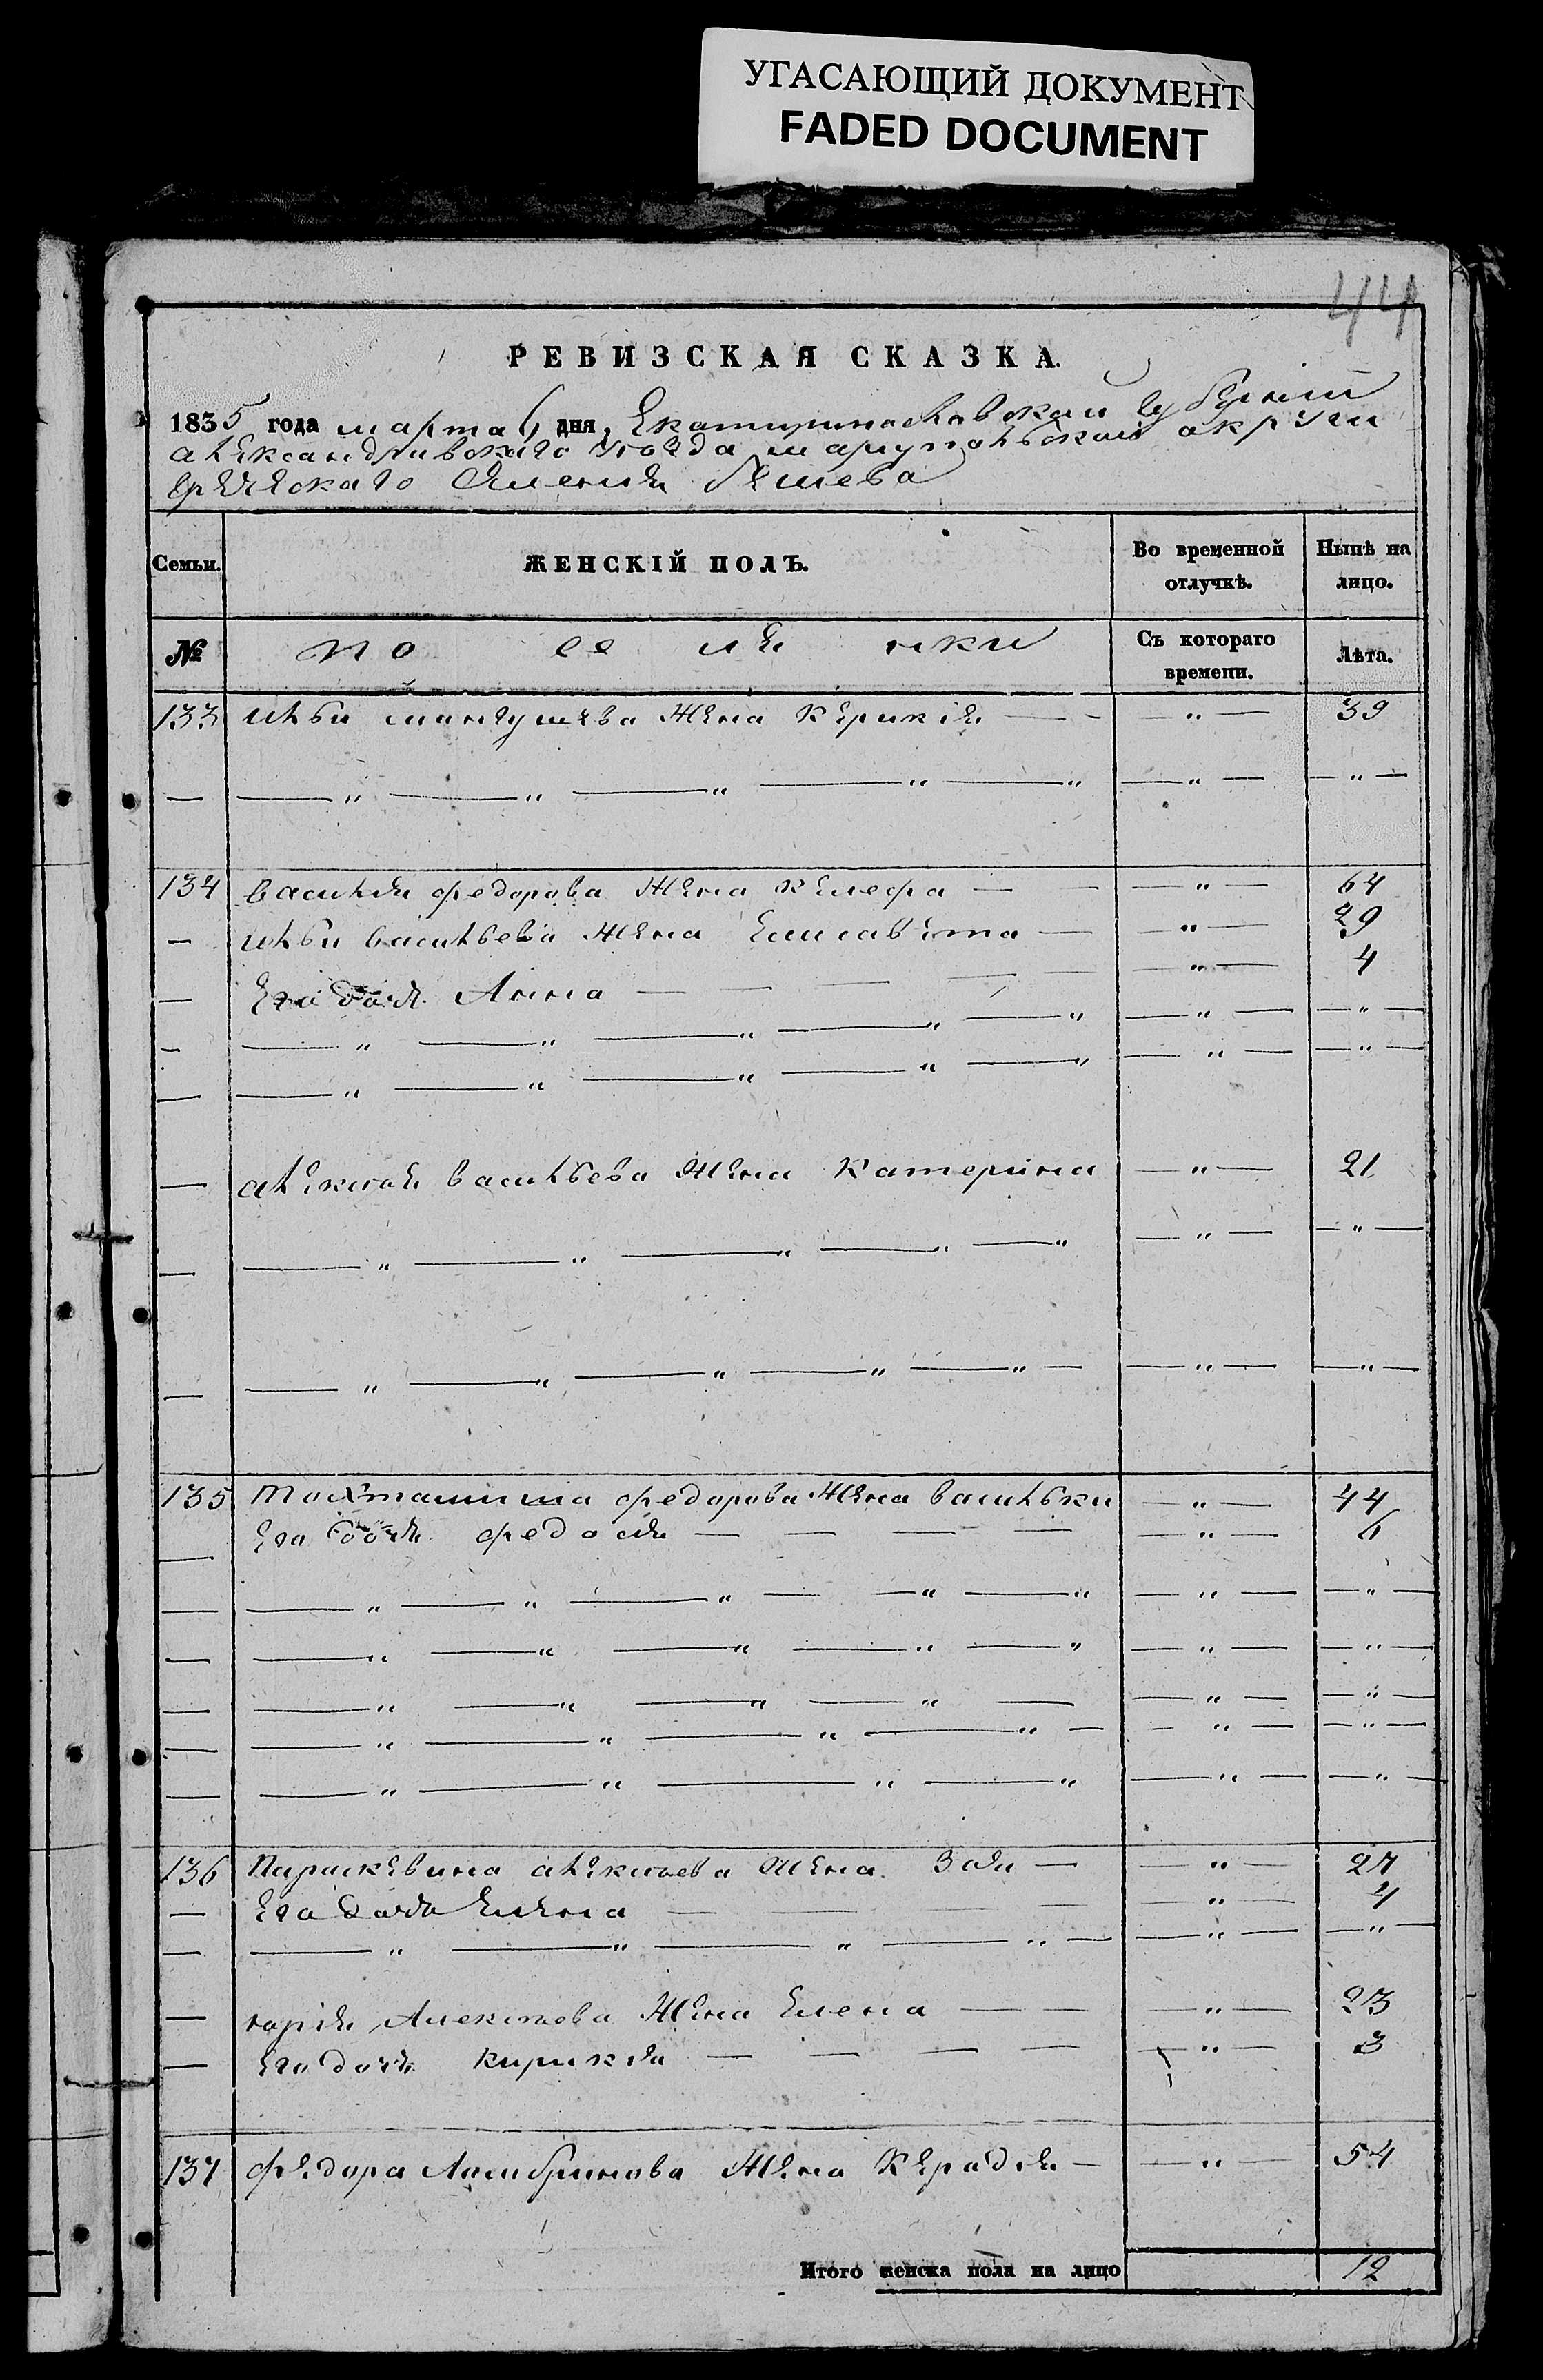 УГАСАЮЩИЙ ДОКУМЕНТ
FADED DOCUMENT
44
РЕВИЗСКАЯ СКАЗКА.
1835 года марта 6 дня, Екатиринославской губерний
александривскаго уезда мариупольской акруги
греческаго Селения Бешева
Семьи. ЖЕНСКІЙ ПОЛЪ. Во временной отлучкѣ. Нынѣ на лицо.
№ по се ля нки Съ котораго времени. Лѣта.
133 ильи мангушева Жена Керикия — — — „ — 39
— — „ — „ — „ — „ — „ — „ — — „ —
134 василия федорова Жена Келефа — — — „ — 64
— ильи васильева Жена Елисавета — — „ — 29
— Его дочь Анна — — — — — „ — 4
— — „ — „ — „ — „ — „ — „ — — „ —
— — „ — „ — „ — „ — „ — „ — — „ —
— алексея васильева Жена Катерина — „ — 21
— — „ — „ — „ — „ — „ — „ — — „ —
— — „ — „ — „ — „ — „ — — „ — — „ —
135 Тохтамиша федорова Жена васильки — „ — 44
— Его дочь федосия — — — — — „ — 6
— — „ — „ — „ — — „ — „ — „ — — „ —
— — „ — „ — „ — „ — „ — „ — — „ —
— — „ — „ — „ — „ — — „ — — „ —
— — „ — „ — „ — „ — — „ — — „ —
— — „ — „ — „ — „ — „ — — „ —
136 Параскевина алексеева Жена Зоя — — „ — 27
— Его дочь Елена — — — — „ — 4
— — „ — „ — „ — „ — — „ — — „ —
— юрия Алексеева Жена Елена — — — „ — 23
— Его дочь Кирикия — — — — — „ — 3
137 Федора Жена Керадия — — „ — 54
Итого женска пола на лицо 12